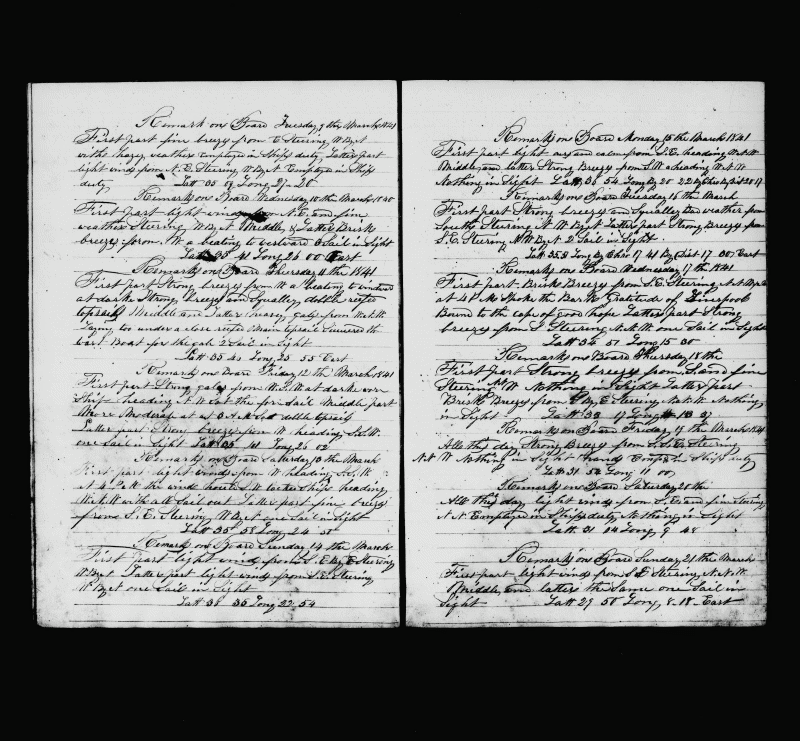 Remark on Board Tuesday 9 the March 1841
First part fine breezes from E Steering W By N
with hazy weather Employed in Ships duty Latter part
light winds from N. E. Steering W By N Employed in Ships
duty Latt 35 09 Long 27-20
Remark on Board Wednesday 10 the March 1840
First part light winds from N. E. and fine
weather Steering W By N Middle & Latter Brisk
breezes from W a beating to westward 2 Sail in Sight
Latt 35 41 Long 26 00 East
Remark on Board Thursday 11 the 1841
First part Strong breezes from W a beating to windward
at dark Strong breezes and Squally double reefed
topsails Middle and Latter heavy gales from W.N.W
Laying too under a close reefed Main topsail
Boat for the gale 2 Sail in Sight
Latt 35 40 Long 25 55 East
Remark on Board Friday 12 the March 1841
First part Strong gales from W.S.W at dark wore
Ship heading N. W Set the fore Sail Middle part
More Moderate at 3 A.M. Set double topsails
Latter part Strong breezes from W heading S.S.W.
one Sail in Sight Latt 35 41 Long 25 02
Remark on Board Saturday 13 the March
First part light winds from W heading S.S.W
At 4 P.M the wind S.W tacked Ship heading
W.N.W with all Sail out Latter part fine breezes
from S. E. Steering W By N one Sail in Sight
Latt 35 58 Long 24 50
Remark on Board Sunday 14 the March
First part light winds from S. E by E Steering
W By N Latter part light winds from S.E. Steering
W By N one Sail in Sight
Latt 36 35 Long 22-54
Remark on Board Monday 15 the March 1841
First part light airs and calm from S.E. heading W.N.W
Middle and Latter Strong Breezes from S.W a heading W.N.W
Nothing in Sight Latt 36 54 Long By 20 22 By Chro By Dist 20 17
Remark on Board Tuesday 16 the March
First part Strong breezes and Squally weather from
South Steering N W By W Latter part Strong Breezes from
S.E. Steering N W By N 2 Sail in Sight.
Latt 35.8 Long By Chro 17 41 By Dist 17 00 East
Remark on Board Wednesday 17 the 1841
First part Brisk Breezes from S.E. Steering N.W By N
at 4 P M Spoke the Bark Gratitude of Liverpool
Bound to the cape of good hope Latter part Strong
breezes from S Steering N.N.W one Sail in Sight
Latt 34 51 Long 15-30
Remark on Board Thursday 18 the
First part Strong breezes from S. and fine
Steering N W Nothing in Sight Latter part
Brisk Breezes from S By E Steering N.N.W Nothing
in Sight Latt 33 17 Long 13 21
Remark on Board Friday 19 the March 1841
All this day Strong Breezes from S.S.E. Steering
N.N W Nothing in Sight hands Employed in Ships duty
Latt 31 54 Long 11 00
Remark on Board Saturday 20 the
All this day light winds from S.E. and fine Steering
N.W. Employed in Ships duty Nothing in Sight
Latt 31 04 Long 9 48
Remark on Board Sunday 21 the March
First part light winds from S.E Steering N.N.W
Middle and latter the Same one Sail in
Sight Latt 29 50 Long 8-18-East